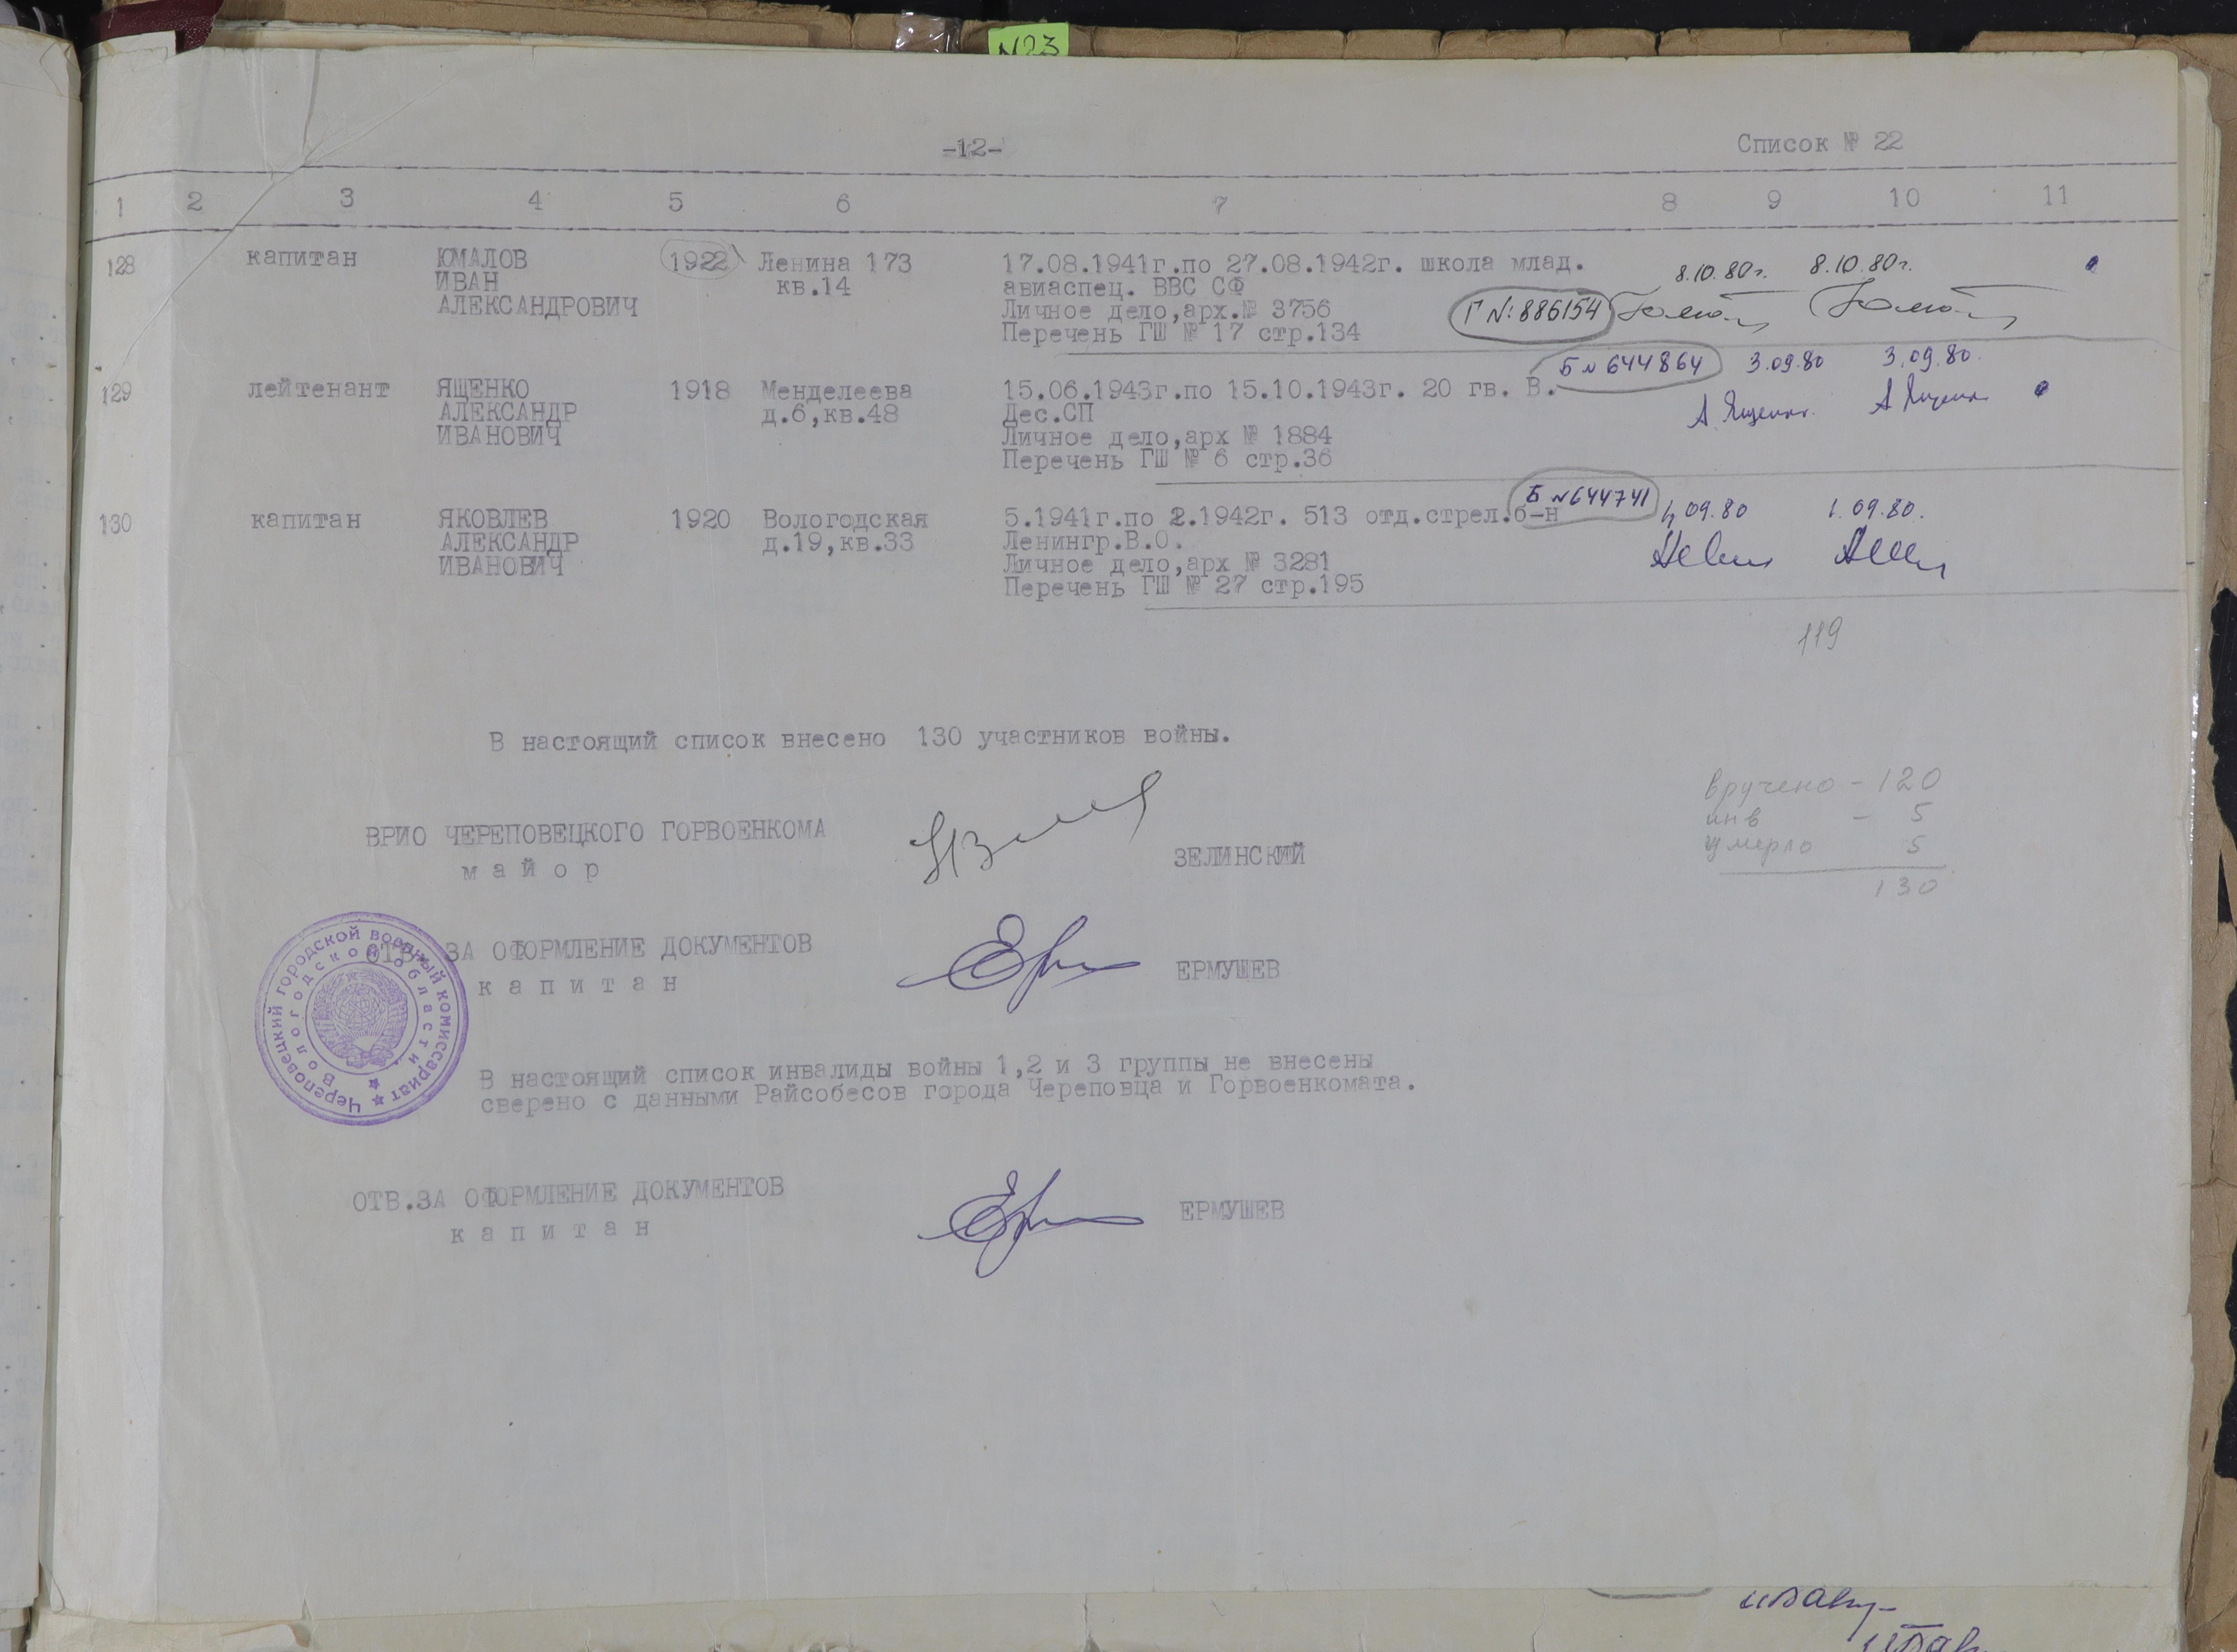 N23
-12-
Список № 22
1 2 3 4 5 6 7 8 9 10 11
128 капитан ЮМАЛОВ 1922 Ленина 173 17.08.1941г.по 27.08.1942г. школа млад. 8.10.80г. 8.10.80г.
ИВАН кв.14 авиаспец. ВВС СФ
АЛЕКСАНДРОВИЧ Личное дело,арх.№ 3756 Г №:886154
Перечень ГШ № 17 стр.134
Б № 644864 3.09.80 3.09.80.
129 лейтенант ЯЩЕНКО 1918 Менделеева 15.06.1943г.по 15.10.1943г. 20 гв. В.
АЛЕКСАНДР д.6,кв.48 Дес.СП А Ященко А Ященко
ИВАНОВИЧ Личное дело,арх № 1884
Перечень ГШ № 6 стр.36
Б №644741
130 капитан ЯКОВЛЕВ 1920 Вологодская 5.1941г.по 2.1942г. 513 отд.стрел.б-н 09.80 1.09.80.
АЛЕКСАНДР д.19,кв.33 Ленингр.В.О.
ИВАНОВИЧ Личное дело,арх № 3281
Перечень ГШ № 27 стр.195
119
В настоящий список внесено 130 участников войны.
вручено - 120
инв - 5
умерло 5
130
ВРИО ЧЕРЕПОВЕЦКОГО ГОРВОЕНКОМА
майор ЗЕЛИНСКИЙ
ОТВ. ЗА ОФОРМЛЕНИЕ ДОКУМЕНТОВ
капитан ЕРМУШЕВ
Череповецкий городской военный комиссариат
Вологодской области
В настоящий список инвалиды войны 1,2 и 3 группы не внесены
сверено с данными Райсобесов города Череповца и Горвоенкомата.
ОТВ.ЗА ОФОРМЛЕНИЕ ДОКУМЕНТОВ
капитан ЕРМУШЕВ